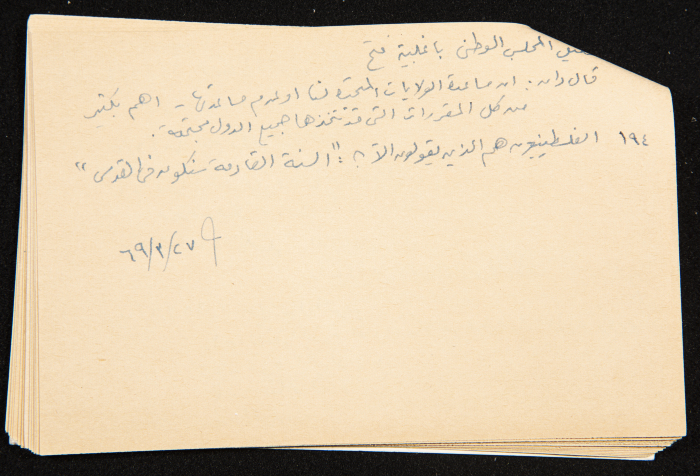 المجلس الوطني باغلبية فتح
قال دايان: ان مساعدة الولايات المتحدة لنا او عدم مساعدتها - اهم بكثير
من كل المقررات التي قد تتخذها جميع الدول مجتمعة.
١٩٤ الفلسطينيون هم الذين يقولون الآن: "السنة القادمة سنكون في القدس"
٦٩/٣/٢٧